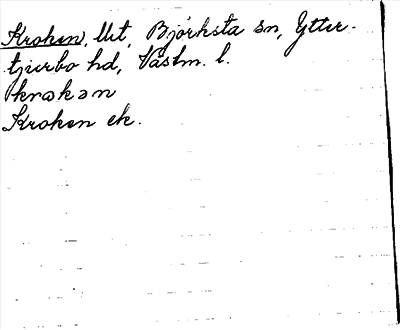 Kroken, Ut, Björksta sn, Ytter-
tjurbo hd, Västm. l.
krokən
Kroken ek.